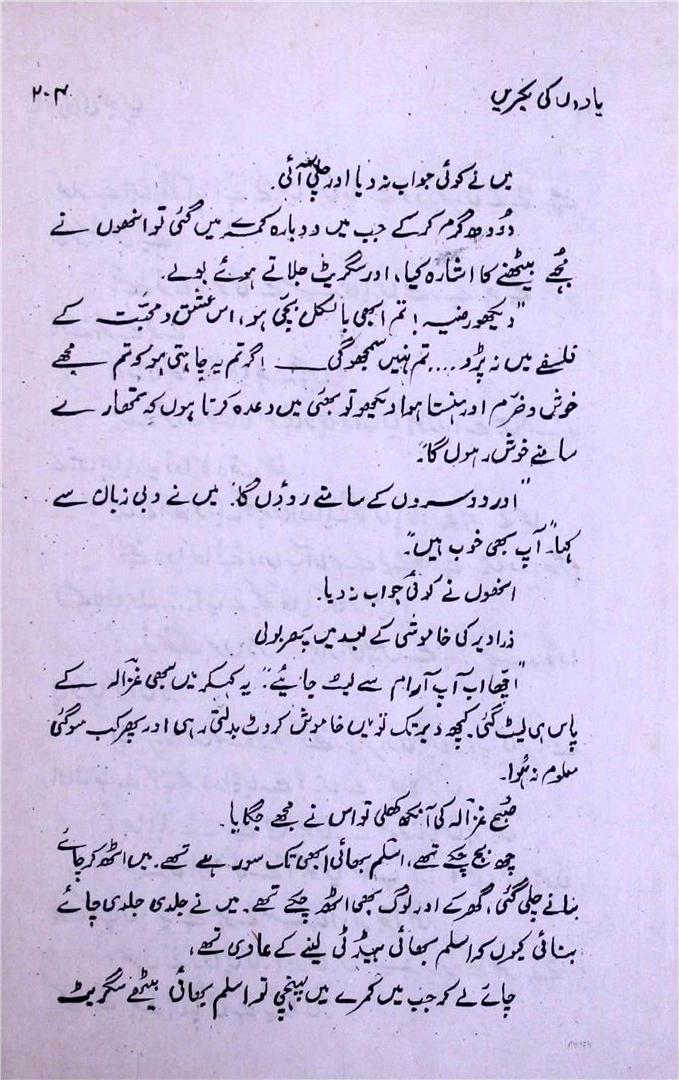 یادوں کی لکیریں
۲۰۴
میں نے کوئی جواب نہ دیا اور چلی آئی۔
دودھ گرم کر کے جب میں دوبارہ کمرہ میں گئی تو انھوں نے
مجھے بیٹھنے کا اشارہ کیا، اور سگریٹ جلاتے ہوئے بولے۔
"دیکھو رضیہ! تم ابھی بالکل بچی ہو، اس عشق و محبت کے
فلسفے میں نہ پڑو .... تم نہیں سمجھو گی ــــــ اگر تم یہ چاہتی ہو کہ تم مجھے
خوش و خرّم اور ہنستا ہوا دیکھو تو بھئی میں وعدہ کرتا ہوں کہ تمھارے
سامنے خوش رہوں گا۔"
"اور دوسروں کے سامنے روؤں گا۔" میں نے دبی زبان سے
کہا۔ "آپ بھی خوب ہیں"۔
انھوں نے کوئی جواب نہ دیا۔
ذرا دیر کی خاموشی کے بعد میں پھر بولی
"اچھا اب آپ آرام سے لیٹ جایئے۔" یہ کہہ کر میں بھی غزالہ کے
پاس ہی لیٹ گئی۔ کچھ دیر تک تو میں خاموش کروٹ بدلتی رہی اور پھر کب سو گئی
معلوم نہ ہُوا۔
صُبح غزالہ کی آنکھ کھلی تو اس نے مجھے جگایا۔
چھ بج چکے تھے، اسلم بھائی ابھی تک سو رہے تھے۔ میں اٹھ کر چائے
بنانے چلی گئی، گھر کے اور لوگ بھی اٹھ چکے تھے۔ میں نے جلدی جلدی چائے
بنائی کیوں کہ اسلم بھائی بیڈ ٹی لینے کے عادی تھے،
چائے لے کر جب میں کمرے میں پہنچی تو اسلم بھائی بیٹھے سگریٹ